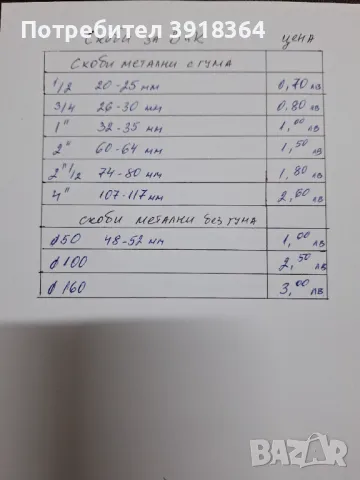 Потребител 3918364
Скоби за ВиК цена
Скоби метални с гума
1/2 20-25 мм 0,70 лв
3/4 26-30 мм 0,80 лв
1" 32-35 мм 1,00 лв
2" 60-64 мм 1,50 лв
2"1/2 74-80 мм 1,80 лв
4" 107-117 мм 2,60 лв
скоби метални без гума
ф50 48-52 мм 1,00 лв
ф100 2,50 лв
ф160 3,00 лв
BAZAR